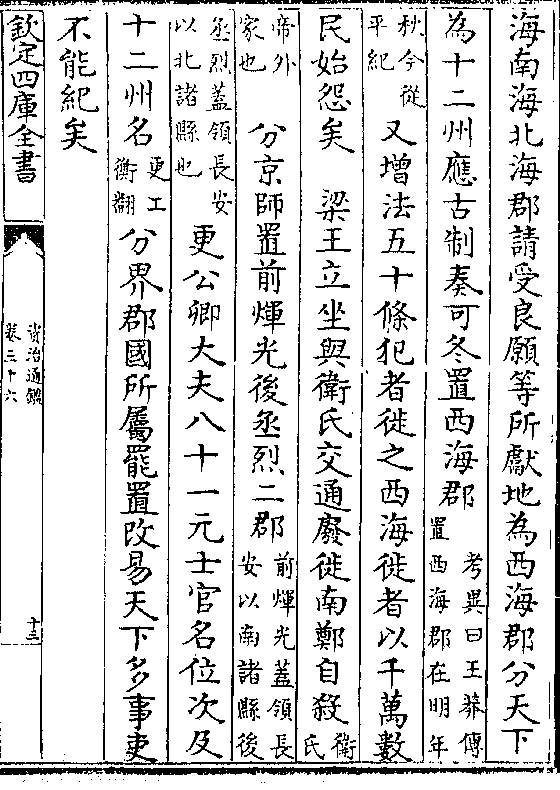 海南海北海郡請受良願等所獻地為西海郡分天下
為十二州應古制奏可冬置西海郡考異曰王莽傳置西海郡在明年
秋今從平紀又增法五十條犯者徙之西海徙者以千萬數
民始怨矣　梁王立坐與衛氏交通廢徙南鄭自殺衛氏
帝外家也　分京師置前煇光後丞烈二郡前煇光蓋領長安以南諸縣後
丞烈蓋領長安以北諸縣也更公卿大夫八十一元士官名位次及
十二州名更工衡翻分界郡國所屬罷置改易天下多事吏
不能紀矣
欽定四庫全書
資治通鑑
卷三十六
十三